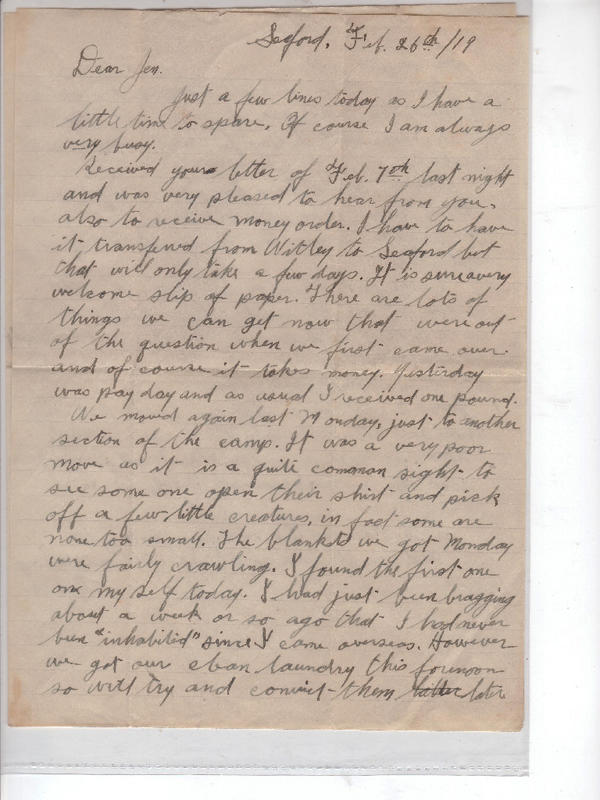 Seaford, Feb. 26th/19
Dear Jen.
Just a few lines today as I have a
little time to spare. Of course I am always
very busy.
Received your letter of Feb. 7th last night
and was very pleased to hear from you,
also to receive money order. I have to have
it transferred from Witley to Seaford but
that will only take a few days. It is sure a very
welcome slip of paper. There are lots of
things we can get now that were out
of the question when we first came over
and of course it takes money. Yesterday
was pay day and as usual I received one pound.
We moved again last Monday, just to another
section of the camp. It was a very poor
move as it is a quite common sight to
see some one open their shirt and pick
off a few little creatures, in fact some are
none too small. The blankets we got Monday
were fairly crawling. I found the first one
on my self today. I had just been bragging
about a week or so ago that I had never
been "inhabited" since I came overseas. However
we got our clean laundry this forenoon
so will try and convict them later